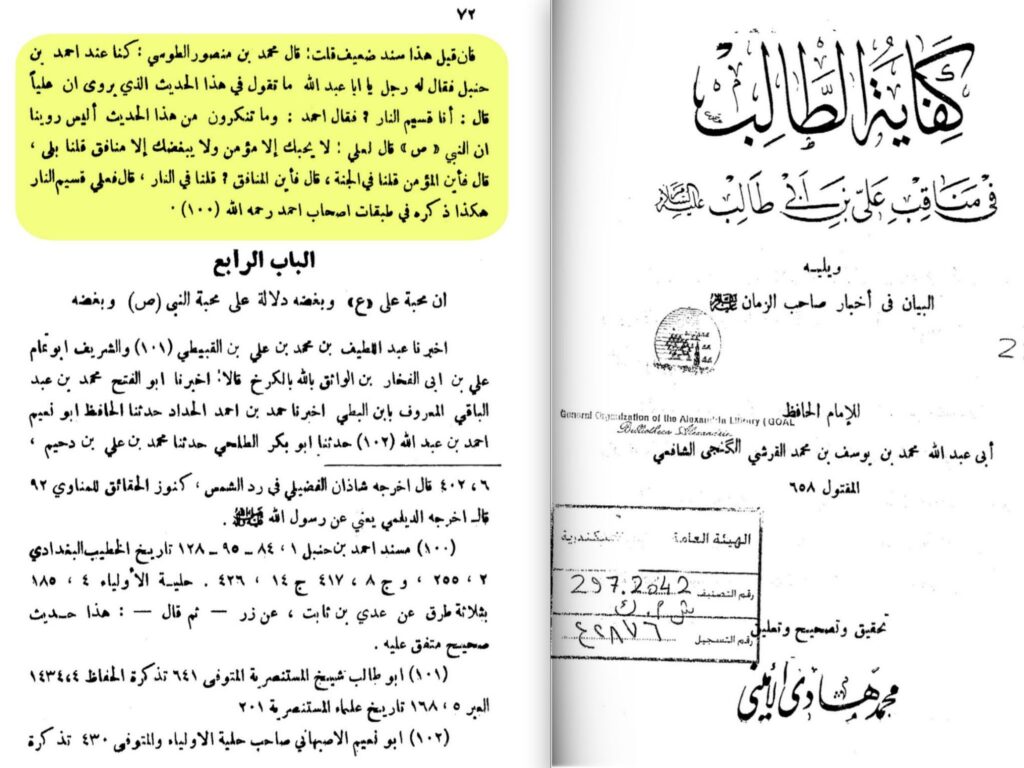 ٧٢
فان قيل هذا سند ضعيف قلت: قال محمد بن منصور الطوسي : كنا عند احمد بن
حنبل فقال له رجل يا ابا عبد الله ما تقول في هذا الحديث الذي يروى ان علياً
قال : أنا قسيم النار ? فقال احمد : وما تنكرون من هذا الحديث أليس روينا
ان النبي « ص » قال لعلي : لا يحبك إلا مؤمن ولا يبغضك إلا منافق قلنا بلى ،
قال فأين المؤمن قلنا في الجنة ، قال فأين المنافق ? قلنا في النار ، قال فعلي قسيم النار
هكذا ذكره في طبقات اصحاب احمد رحمه الله (١٠٠) .
الباب الرابع
ان محبة علي «ع» وبغضه دلالة على محبة النبي (ص) وبغضه
اخبرنا عبد اللطيف بن محمد بن علي بن القبيطي (١٠١) والشريف ابو تمام
علي بن ابى الفخار بن الواثق بالله بالكرخ قالا: اخبرنا ابو الفتح محمد بن عبد
الباقي المعروف بابن البطي اخبرنا حمد بن احمد الحداد حدثنا الحافظ ابو نعيم
احمد بن عبد الله (١٠٢) حدثنا ابو بكر الطلحي حدثنا محمد بن علي بن دحيم ،
٦ ، ٤٠٢ قال اخرجه شاذان الفضيلي في رد الشمس ، كنوز الحقائق للمناوي ٩٢
قال اخرجه الديلمي يعني عن رسول الله ﷺ .
(١٠٠) مسند احمد بن حنبل ١ ، ٨٤ ــ ٩٥ ــ ١٢٨ تاريخ الخطيب البغدادي
٢ ، ٢٥٥ ، وج ٨ ، ٤١٧ ج ١٤ ، ٤٢٦ . حلية الأولياء ٤ ، ١٨٥
بثلاثة طرق عن عدي بن ثابت ، عن زر — ثم قال — : هذا حديث
صحيح متفق عليه .
(١٠١) ابو طالب شيخ المستنصرية المتوفى ٦٤١ تذكرة الحفاظ ٤، ١٤٣٤
العبر ٥ ، ١٦٨ تاريخ علماء المستنصرية ٢٠١
(١٠٢) ابو نعيم الاصبهاني صاحب حلية الاولياء والمتوفى ٤٣٠ تذكرة
كفاية الطالب
في مناقب علي بن أبي طالب عليه السلام
ويليه
البيان في أخبار صاحب الزمان
2
للإمام الحافظ
General Organization of the Alexandria Library (GOAL
Bibliotheca Alexandrina
أبي عبد الله محمد بن يوسف بن محمد القرشي الگنجى الشافعي
المقتول ٦٥٨
الهيئة العامة السكندرية
رقم التصنيف 297.2642
ش م. ك
رقم التسجيل ٤٢٨٧٦
تحقيق وتصحيح وتعليق
محمد هادي الأميني